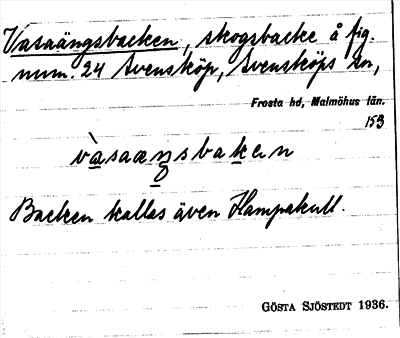 Vasaängsbacken, skogsbacke å fig.
num. 24 Svensköp, Svensköps sn,
Frosta hd, Malmöhus län.
153
vàsaæŋsbakɐn
Backen kallas även Hampakull.
GÖSTA SJÖSTEDT 1936.